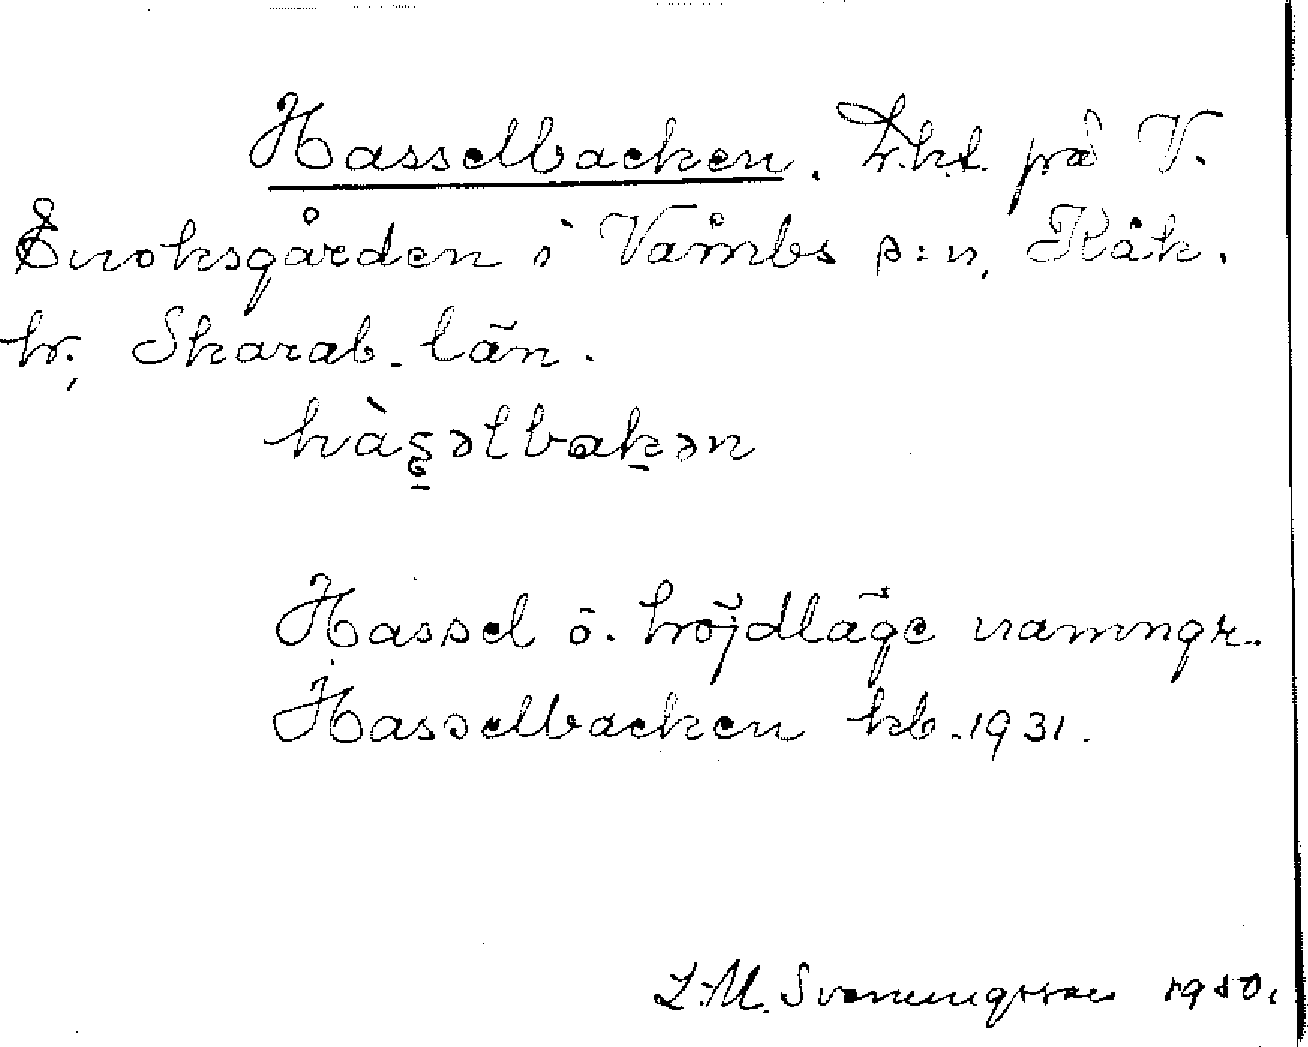 Hasselbacken. Lht på V.
Enoksgården i Våmbs s:n, Kåk.
hr, Skarab. län.
hàs̱əlbaḵən
Hassel o. höjdläge namngr.
Hasselbacken kb. 1931.
L.M. Svenungsson 1950.